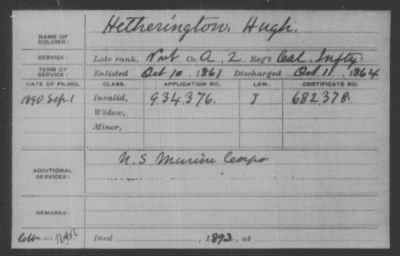 NAME OF SOLDIER: Hetherington, Hugh.
SERVICE: Late rank, Pvt Co. A, 2 Reg't Cal. Infty
TERM OF SERVICE: Enlisted Oct 10, 1861 Discharged Oct 11, 1864
DATE OF FILING. CLASS. APPLICATION NO. LAW. CERTIFICATE NO.
1890 Sep 1 Invalid, 934,376. J 682,378.
Widow,
Minor,
ADDITIONAL SERVICES: U.S Marine Corps
REMARKS:
Died , 1893, at